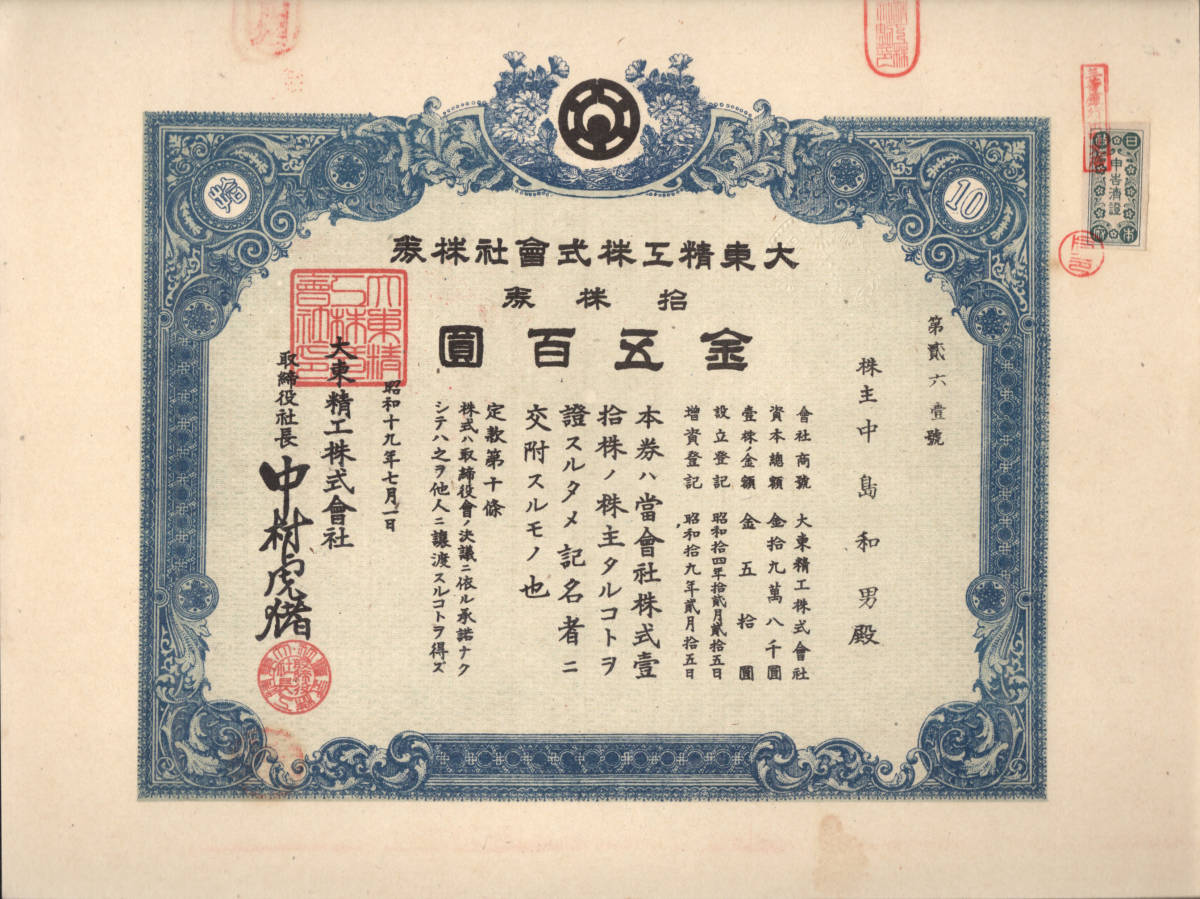 大東精工株式會社株券
拾株券
金五百圓
第貳六壹號
株主中島和男殿
會社商號 大東精工株式會社
資本總額 金拾九萬八千圓
壹株ノ金額 金五拾圓
設立登記 昭和拾四年拾貳月貳拾五日
增資登記 昭和拾九年貳月拾五日
本券ハ當會社株式壹
拾株ノ株主タルコトヲ
證スルタメ記名者ニ
交附スルモノ也
定款第十條
株式ハ取締役會ノ決議ニ依ル承諾ナク
シテハ之ヲ他人ニ讓渡スルコトヲ得ズ
昭和十九年七月一日
大東精工株式會社
取締役社長 中村虎猪
拾
10
申告濟證